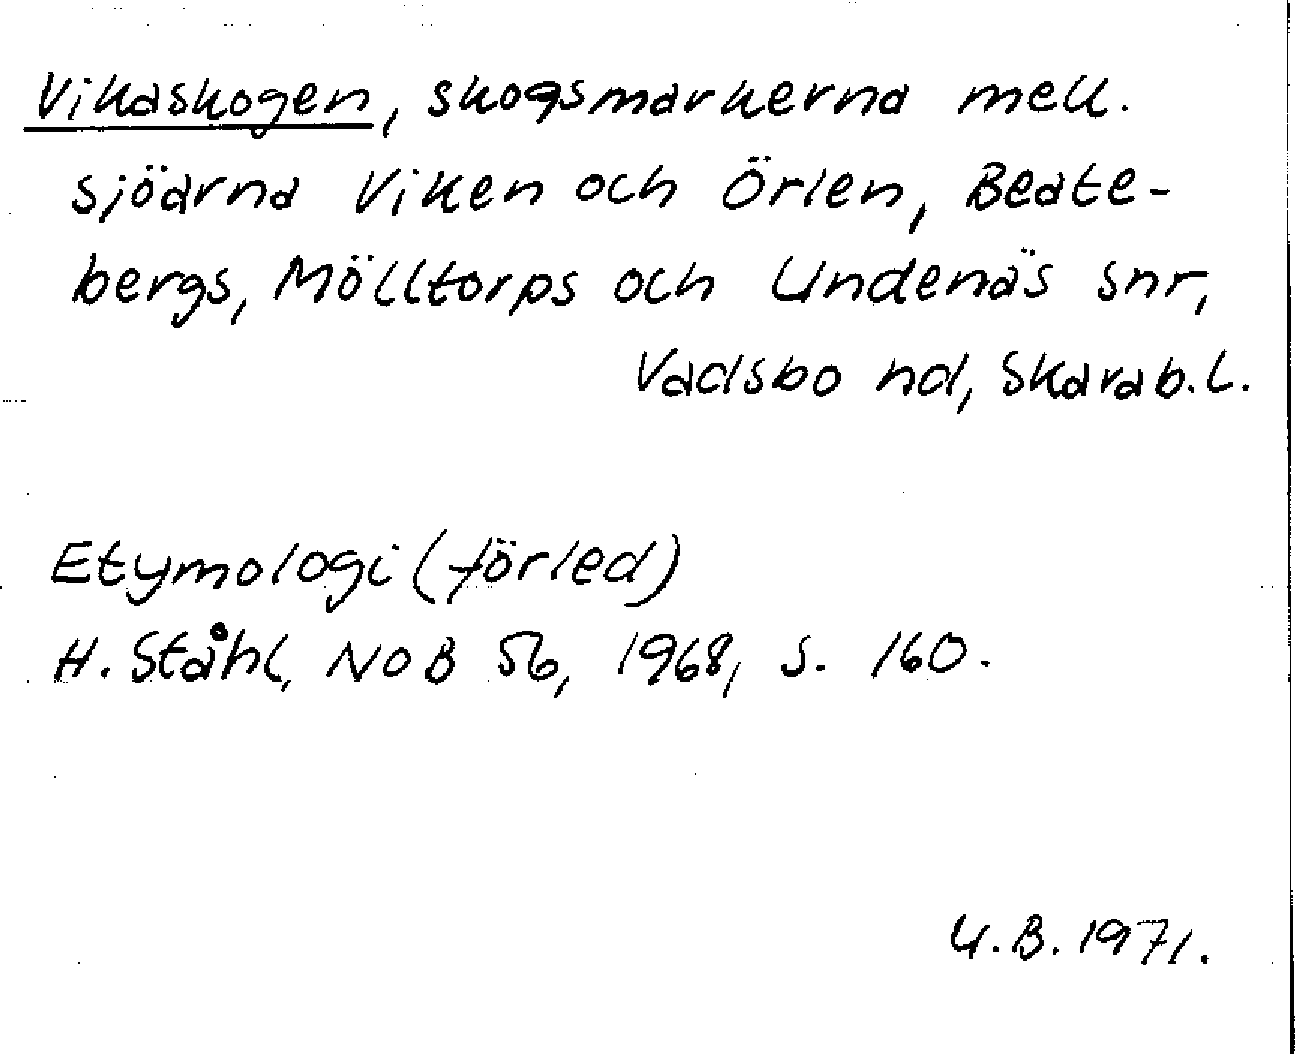 Vikaskogen, skogsmarkerna mell.
sjöarna Viken och Örlen, Beate-
bergs, Mölltorps och Undenäs snr,
Vadsbo hd, Skarab.l.
Etymologi (förled)
H. Ståhl, NoB 56, 1968, s. 160.
U.B. 1971.